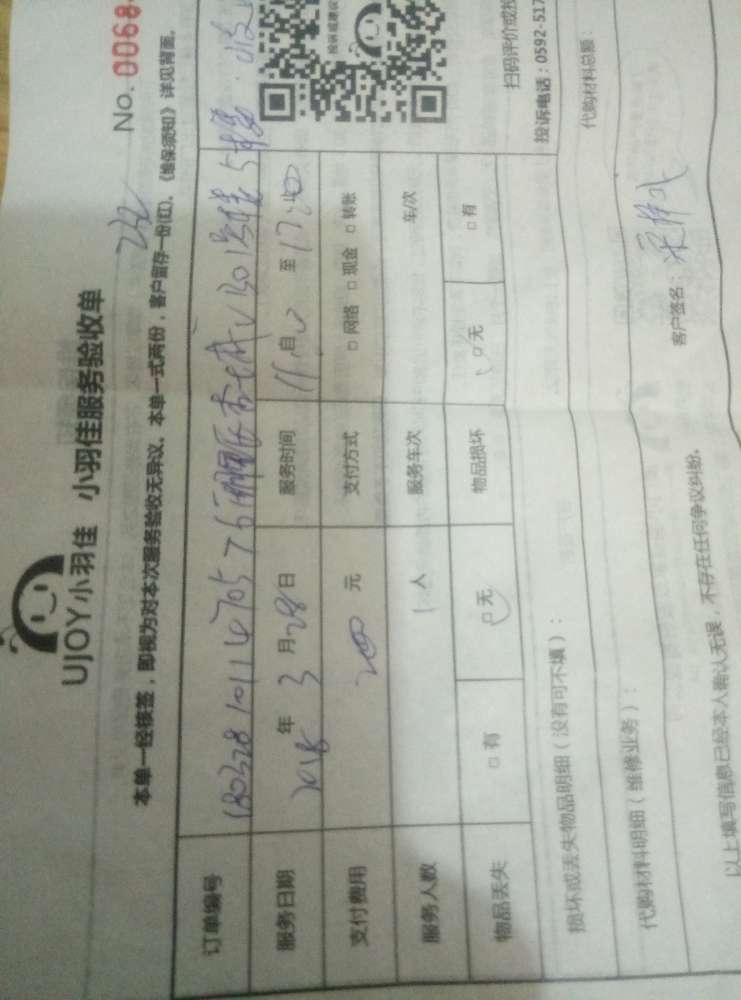 UJOY小羽佳 小羽佳服务验收单
No. 0068
本单一经核签，即视为对本次服务验收无异议。本单一式两份，客户留存一份(红)。《维保须知》详见背面。
订单编号 1803281011470576
服务日期 2018 年 3 月 28 日 服务时间 自 至 17:00
支付费用 200 元 支付方式 □ 网络 □ 现金 □ 转账
服务人数 1 人 服务车次 车/次
物品丢失 □ 有 □ 无 物品损坏 □ 无 □ 有
扫码评价或投
投诉电话：0592-517
损坏或丢失物品明细（没有可不填）：
代购材料明细（维修业务）： 代购材料总额：
以上填写信息已经本人确认无误，不存在任何争议纠纷。 客户签名：